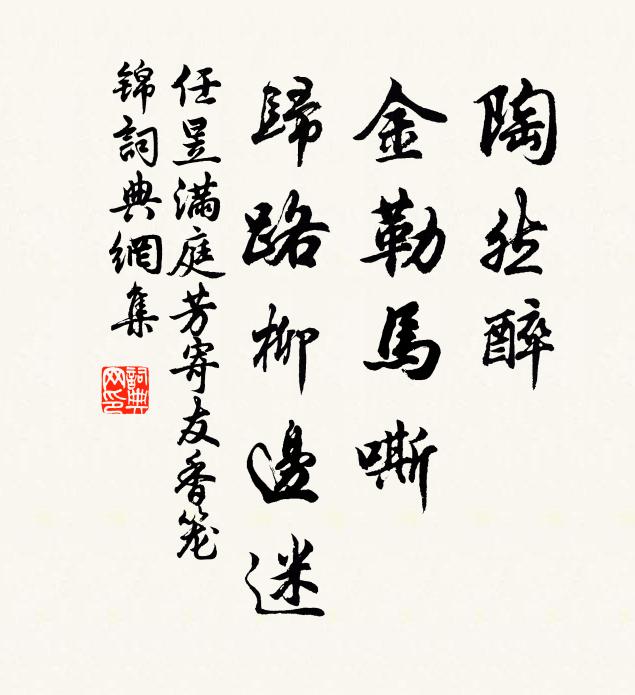 陶然醉
金勒馬嘶
歸路柳邊迷
任昱满庭芳寄友香笼
锦詞典網集
詞典
网印